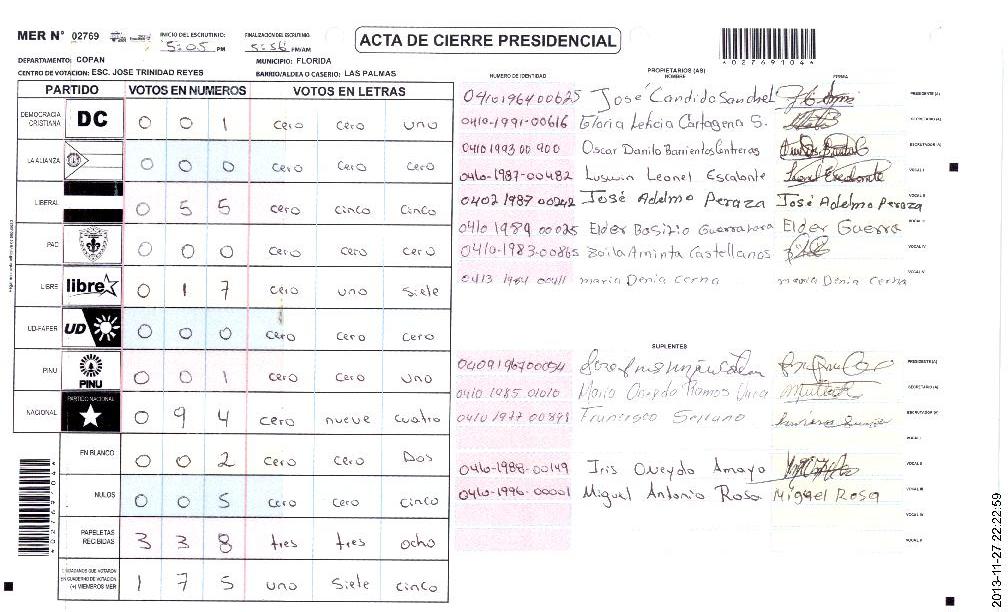 MER N° 02769
INICIO DEL ESCRUTINIO:
5:05 PM
FINALIZACION DEL ESCRUTINIO:
5:56 PM/AM
ACTA DE CIERRE PRESIDENCIAL
*027691044*
DEPARTAMENTO: COPAN
MUNICIPIO: FLORIDA
CENTRO DE VOTACION: ESC. JOSE TRINIDAD REYES
BARRIO/ALDEA O CASERIO: LAS PALMAS
PARTIDO VOTOS EN NUMEROS VOTOS EN LETRAS
DEMOCRACIA CRISTIANA DC 0 0 1 cero cero uno
LA ALIANZA 0 0 0 cero cero cero
LIBERAL 0 5 5 cero cinco cinco
PAC 0 0 0 cero cero cero
LIBRE libre 0 1 7 cero uno siete
UD-FAPER UD 0 0 0 cero cero cero
PINU PINU 0 0 1 cero cero uno
NACIONAL PARTIDO NACIONAL 0 9 4 cero nueve cuatro
EN BLANCO 0 0 2 cero cero Dos
NULOS 0 0 5 cero cero cinco
PAPELETAS RECIBIDAS 3 3 8 tres tres ocho
CIUDADANOS QUE VOTARON EN CUADERNO DE VOTACION (+) MIEMBROS MER 1 7 5 uno siete cinco
NUMERO DE IDENTIDAD PROPIETARIOS (AS) NOMBRE FIRMA
0410196400625 José Candido Sanchez PRESIDENTE(A)
0410-1991-00616 Gloria Leticia Cartagena S. SECRETARIO(A)
0410 1993 00 900 Oscar Danilo Barrientos Contreras ESCRUTADOR (A)
0410-1987-00482 Luswin Leonel Escalante VOCAL I
0402 1987 00242 José Adelmo Peraza José Adelmo Peraza VOCAL II
0410 1989 00025 Elder Elder Guerra VOCAL III
0410-1983-00865 Zoila Aminta Castellanos VOCAL IV
0413 1984 00411 maria Denia cerna maria Denia cerna VOCAL V
SUPLENTES
PRESIDENTE(A)
0410 1985 01010 Mario Oviedo Ramos SECRETARIO(A)
0410 1977 00891 Francisco Serrano ESCRUTADOR (A)
VOCAL I
0410-1988-00149 Iris Oneyda Amaya VOCAL II
0410-1996-00001 Miguel Antonio Rosa Miguel Rosa VOCAL III
VOCAL IV
VOCAL V
2013-11-27 22:22:59